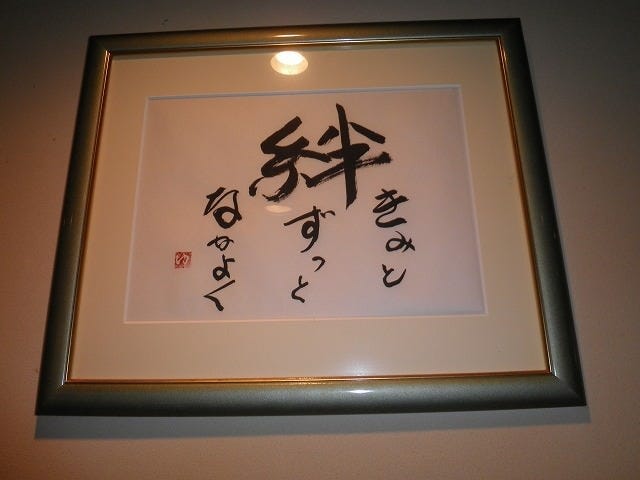 絆
きみと
ずっと
なかよく